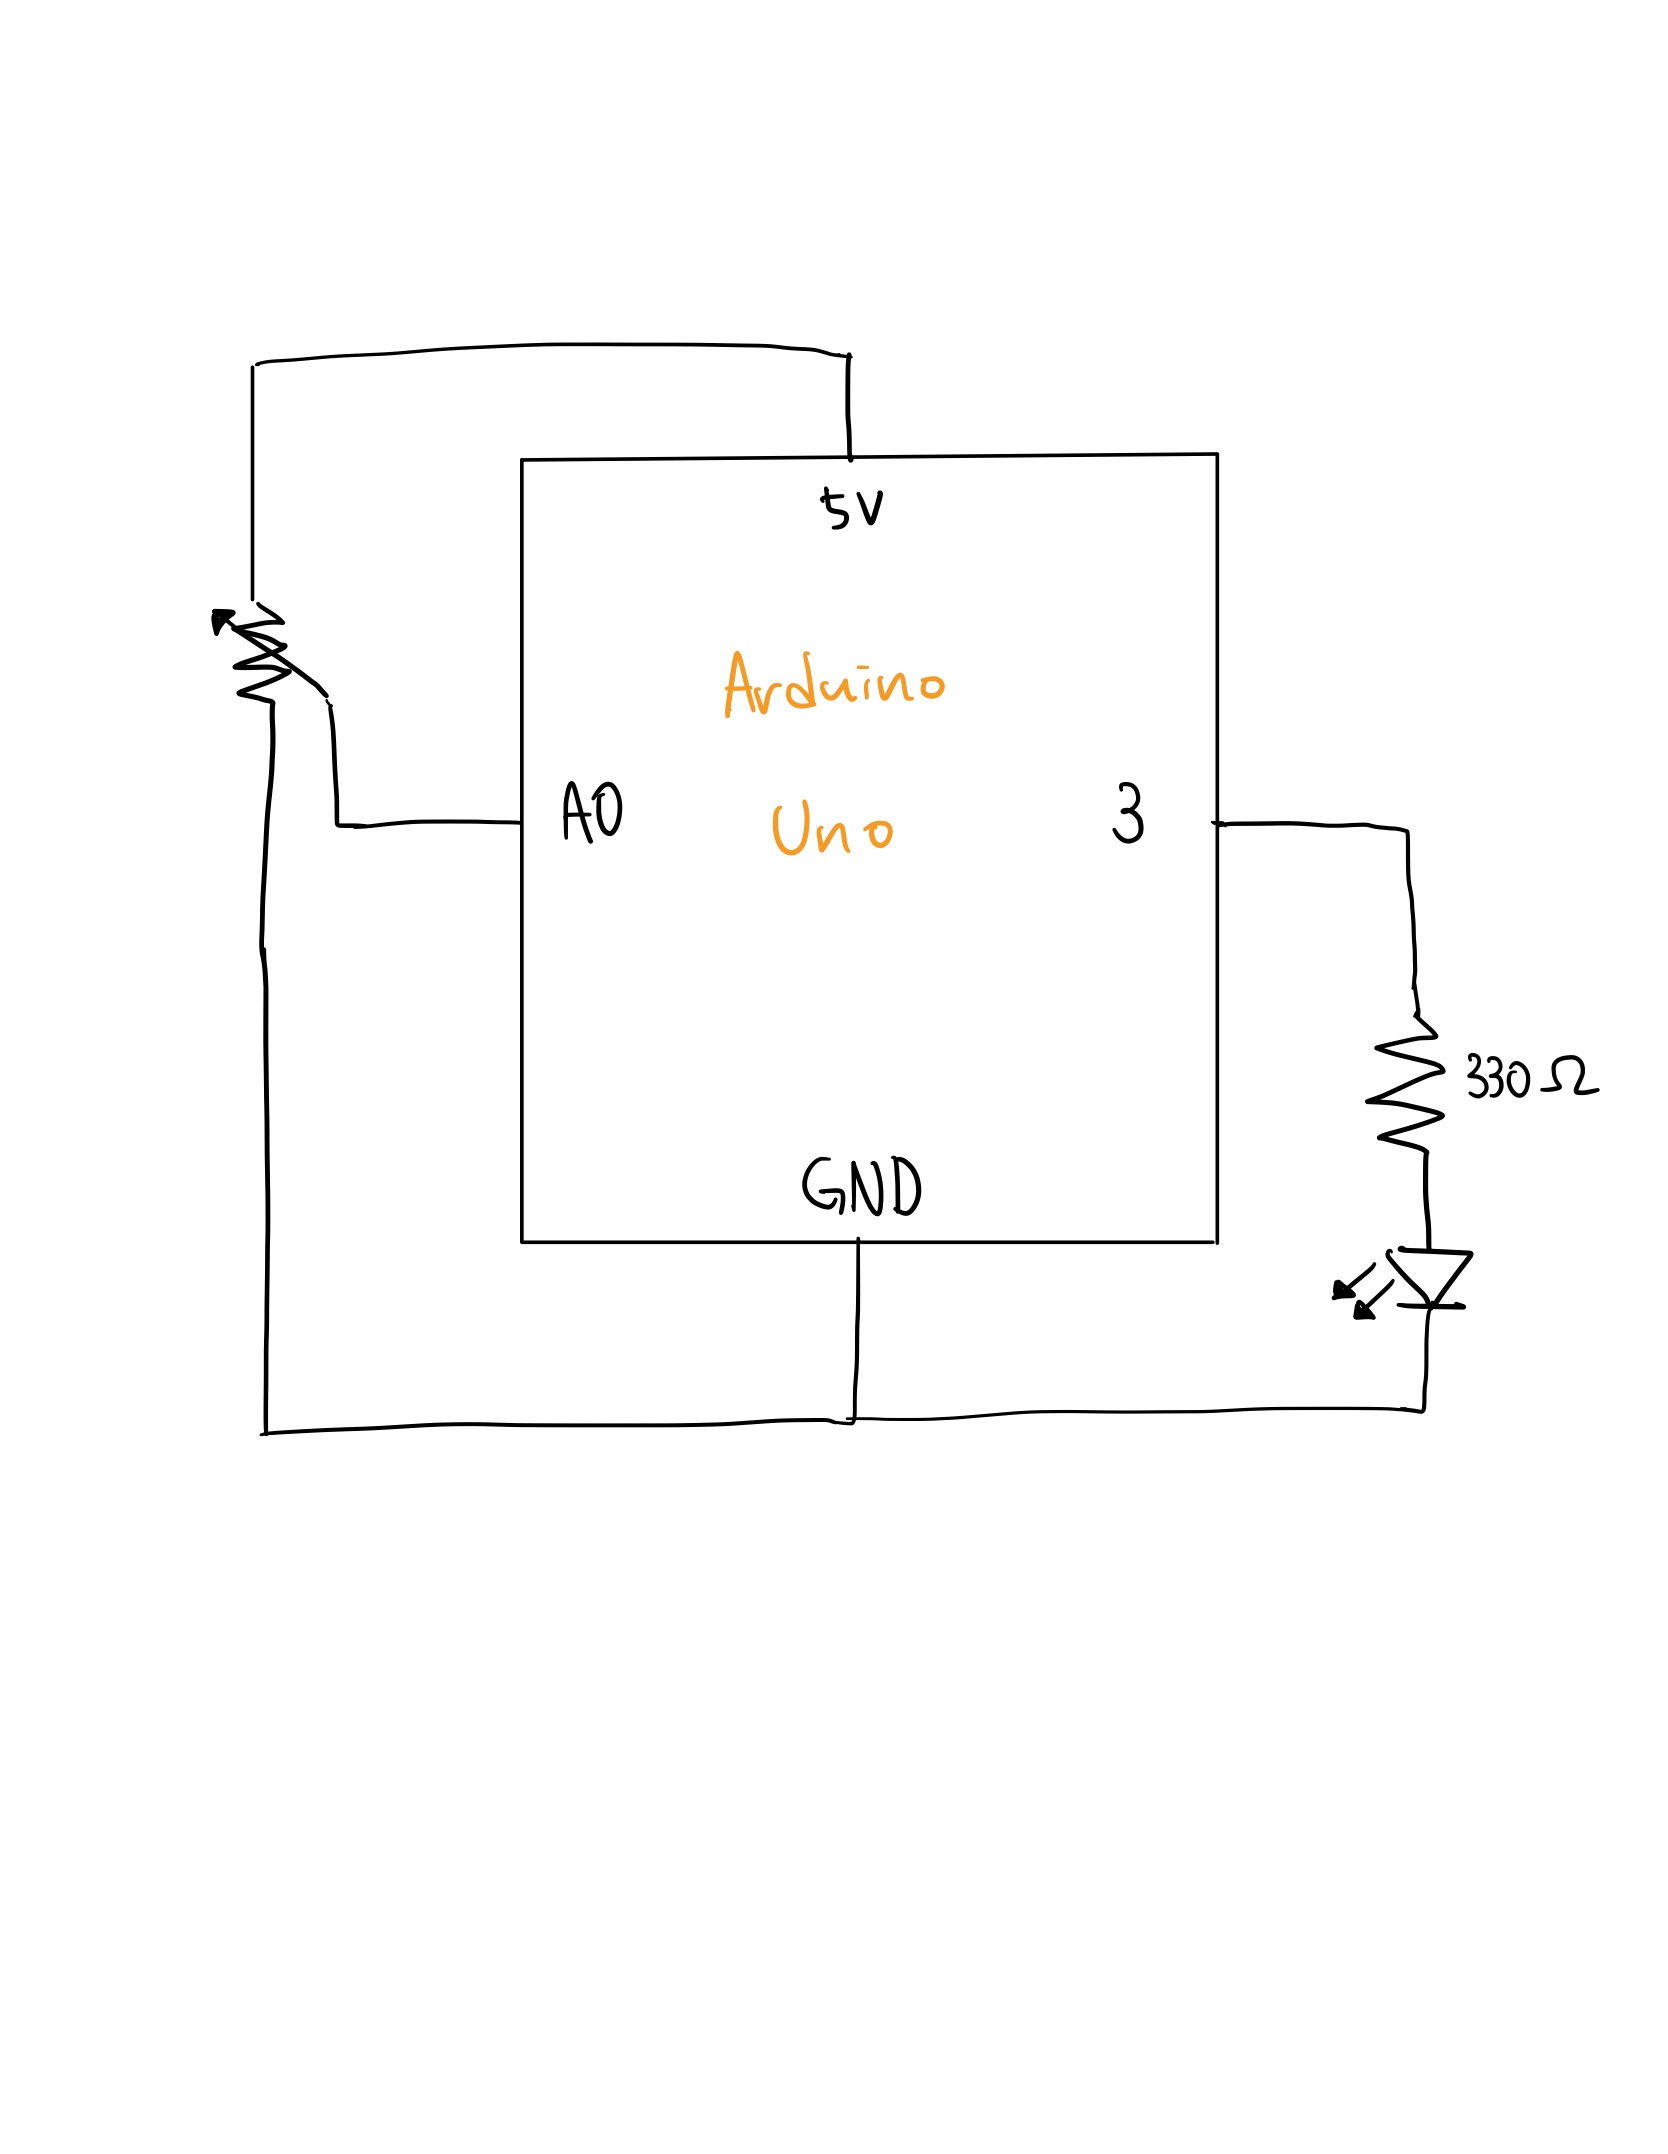 5V
Arduino
A0
Uno
3
330 Ω
GND